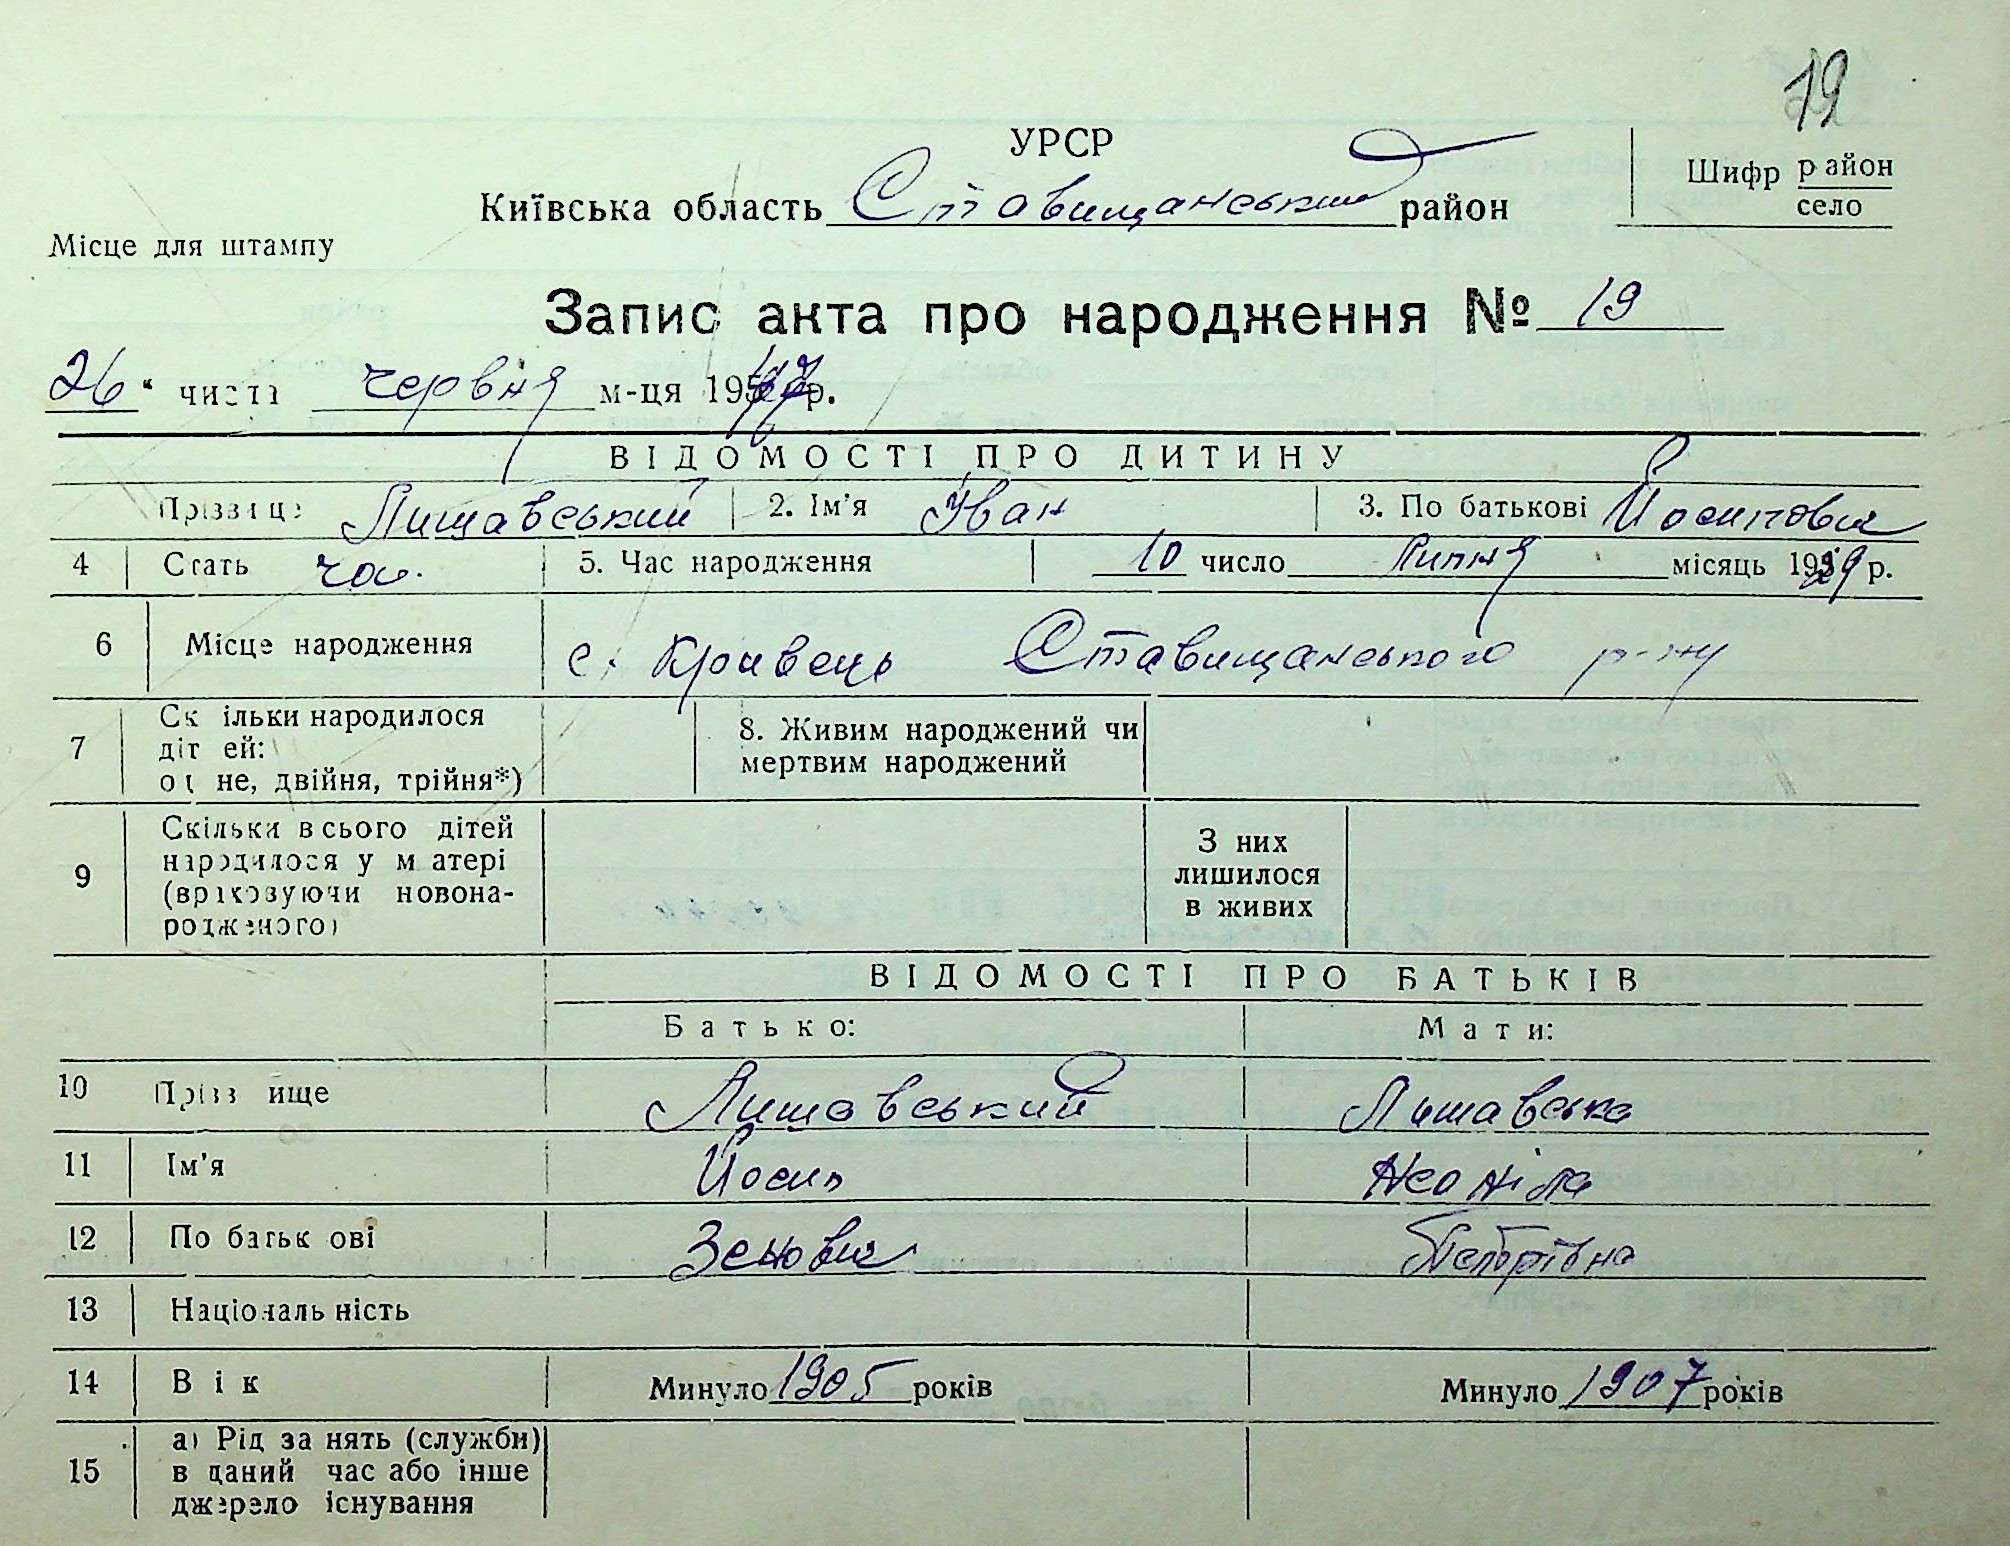 19
УРСР
Київська область Ставищанський район
Шифр район
село
Місце для штампу
Запис акта про народження № 19
26 " числа червня м-ця 19 р.
ВІДОМОСТІ ПРО ДИТИНУ
Прізвище Лишавський 2. Ім'я Іван 3. По батькові Йосипович
4 Стать чол. 5. Час народження 10 число Липня місяць 1929 р.
6 Місце народження с. Кривець Ставищанського р-ну
7 Скільки народилося дітей: одне, двійня, трійня*) 8. Живим народжений чи мертвим народжений
9 Скільки всього дітей народилося у матері (враховуючи новонародженого) З них лишилося в живих
ВІДОМОСТІ ПРО БАТЬКІВ
Батько: Мати:
10 Прізвище Лишавський Лишавська
11 Ім'я Йосип Неоніла
12 По батькові Зенович
13 Національність
14 Вік Минуло 1905 років Минуло 1907 років
15 а) Рід занять (служби) в даний час або інше джерело існування